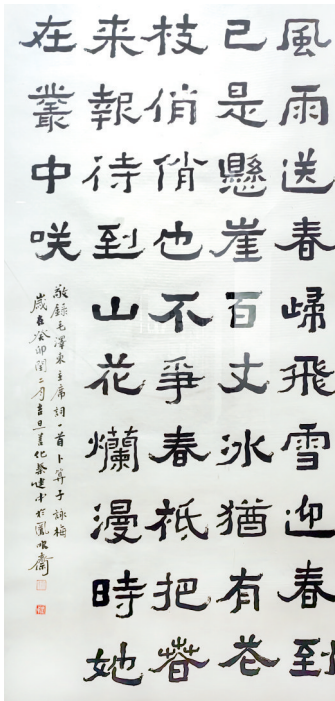 風雨送春歸飛雪迎春到
已是懸崖百丈冰猶有花
枝俏俏也不爭春祇把春
来報待到山花爛漫時她
在叢中咲
敬錄毛澤東主席詞一首卜算子詠梅
歲在癸卯閏二月吉旦善化蔡建中於鳳齋